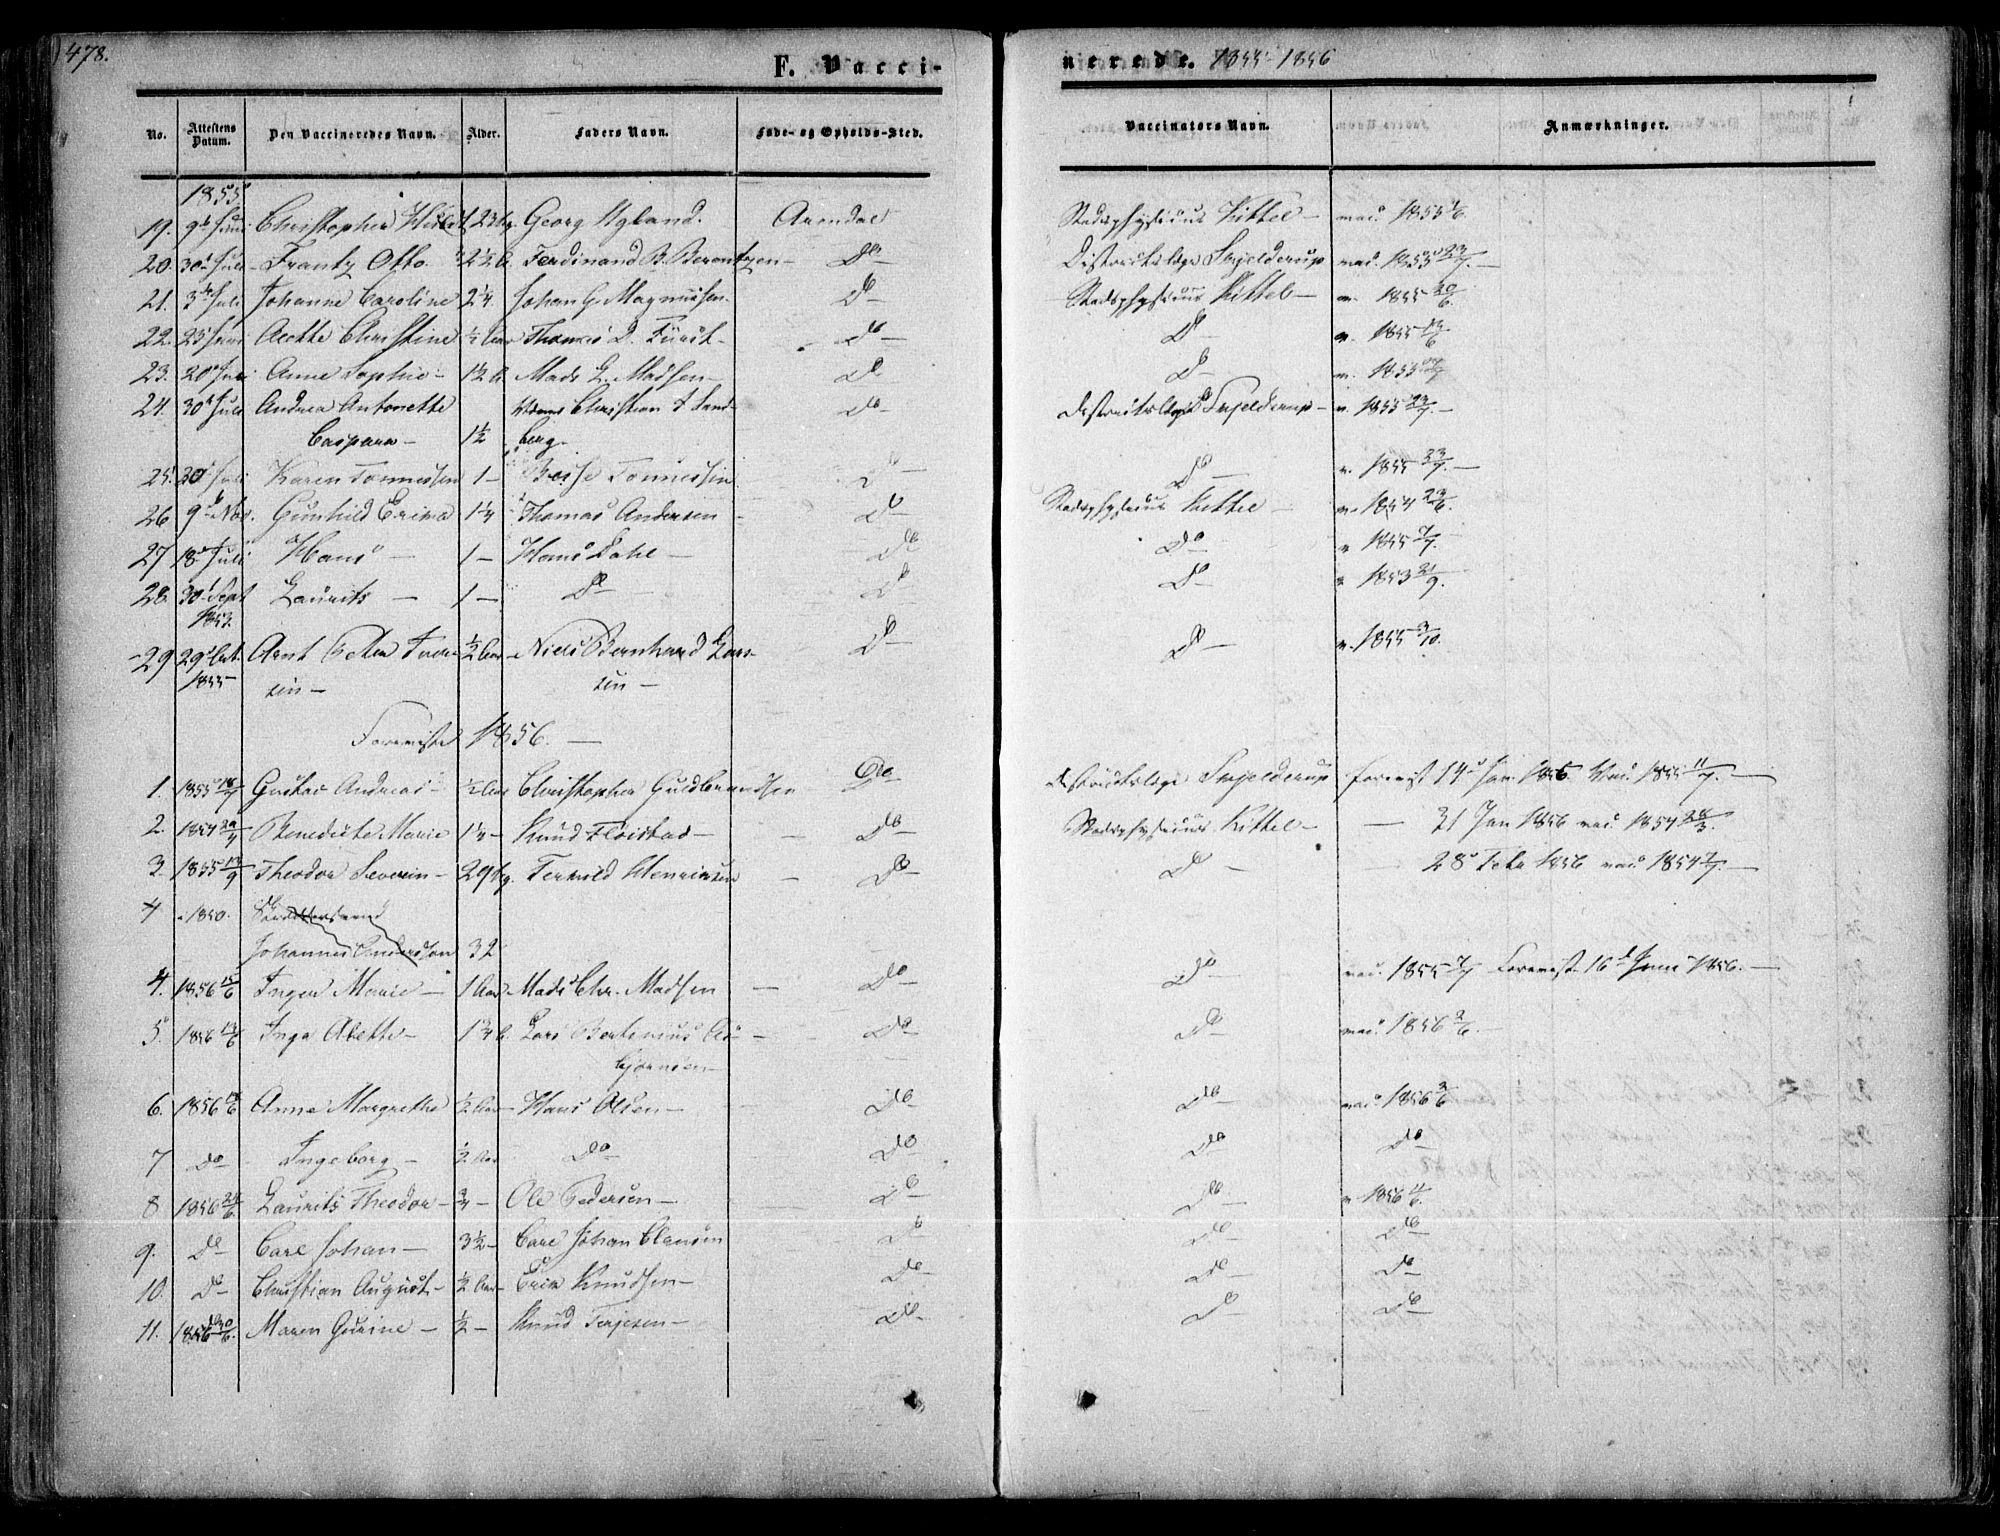 478.
F. Vacci-
nerede. 1855-1856
No. Attestens Datum. Den Vaccineredes Navn. Alder. Faders Navn. Føde- og Opholds-Sted. Vaccinators Navn. Anmærkninger.
1855
19. 9d Juni Christopher Georg Ugland. Arendal Stadsphysicus Kittel - vac. 1855 1/6.
20. 30d Juli Frantz Otto. 2 1/2 Ferdinand B. Berentzen - Do - Districtslæge Skjelderup vac. 1855 23/7.
21. 3d Juli Johanne Caroline 2 1/4 Johan G. Magnussen. Do - Stadsphysicus Kittel - v. 1855 20/6.
22. 23d Juni Alette Christine 1/2 Aar Thomas D. Fürst - Do - Do - v. 1855 13/6
23. 20d Juli Anne Sophie - 1 1/2 Mads L. Madsen - Do - Do - v. 1855
24. 30d Juli Andrea Antonette Christian Sand- Do - Districtslæge Skjelderup - v. 1855 23/7. -
Caspara - 1 1/2 berg.
25. Juli Karen Tønnessen 1 - Tønnessen Do - Do - v. 1855 23/7. -
26. 9d Nov. Gunhild Erika 1 1/4 Thomas Andersen - Do - Stadsphysicus Kittel - v. 1854 23/6.
27 18d Juli Hans - 1 - Hans Dahl - Do Do - v. 1855 7/7.
28. 30d Sept Laurits - 1 - Do - Do Do - v. 1853 21/9.
1853.
29 29d Oct. Arnt Peter Iver- 1/2 Aar Niels Bernhard Lar- Do - Do - v. 1855 3/10. -
1855 sen - sen -
Foreviste 1856. -
1. 1855 18/7 Gustav Andreas - 1/2 Aar Christopher Guldbrandsen Do Districtslæge Skjelderup forevist 14d Jan 1856. Vac. 1855 11/7. -
2. 1854 29/4 Benedicte Marie 1 1/4 - Knud Fløistad - - Do - Stadsphysicus Kittel - - 31 Jan 1856 vac. 1854 28/3.
3. 1855 13/9 Theodor Severin - Terkild Henriksen - Do - Do - - 28d Febr 1856 vac. 1854 7/7. -
4 1850.
Johannes Anderssen 32
4. 1856 15/6 Inger Marie - 1 Aar - Mads Chr. Madsen - Do - Do - vac. 1855 7/7 Forevist 16d Juni 1856. -
5. 1856 13/6 Inga Alette - 1 3/4 Lars Bertinius As- - Do - Do - vac. 1856 2/6. -
bjørnsen -
6. 1856 Anne Margrethe 1/2 Aar - Hans Olsen - Do - Do - vac. 1856 3/6
7 Do - Ingeborg - 1/2 Aar Do - Do - Do - Do -
8 1856 24/6. Laurits Theodor - 3/4 - Ole Pedersen - Do - Do - v 1856 11/6.
9. Do - Carl Johan - 3 1/2 - Carl Johan Clausen Do - Do - Do -
10. Do - Christian August - 1/2 Aar - Erik Knudsen - Do - Do - Do -
11. 1856 30/6. Maren Gurine - 1/2 - Knud Terjesen - Do - Do - Do -